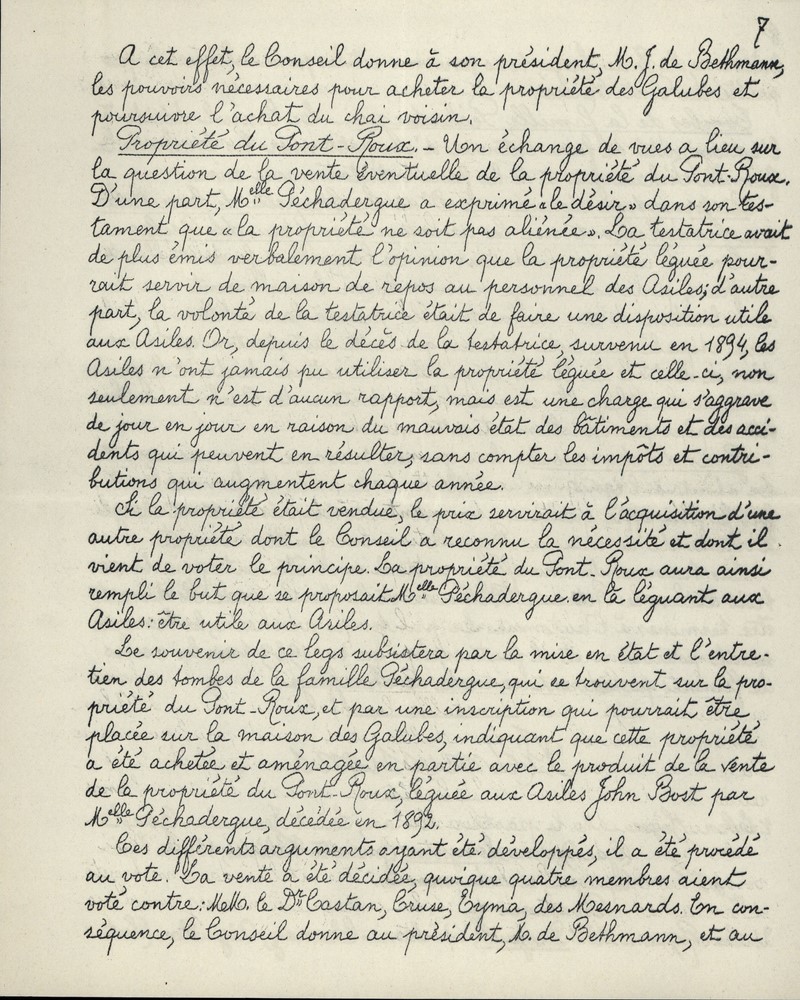 7
A cet effet, le Conseil donne à son président, M. J. de Bethmann,
les pouvoirs nécessaires pour acheter la propriété des Galubes et
poursuivre l'achat du chai voisin.
Propriété du Pont-Roux. - Un échange de vues a lieu sur
la question de la vente éventuelle de la propriété du Pont-Roux.
D'une part, Melle Péchadergue a exprimé « le désir » dans son tes-
tament que « la propriété ne soit pas aliénée ». La testatrice avait
de plus émis verbalement l'opinion que la propriété léguée pour-
rait servir de maison de repos au personnel des Asiles; d'autre
part, la volonté de la testatrice était de faire une disposition utile
aux Asiles. Or, depuis le décès de la testatrice, survenu en 1894, les
Asiles n'ont jamais pu utiliser la propriété léguée et celle-ci, non
seulement n'est d'aucun rapport, mais est une charge qui s'aggrave
de jour en jour en raison du mauvais état des bâtiments et des acci-
dents qui peuvent en résulter, sans compter les impôts et contri-
butions qui augmentent chaque année.
Si la propriété était vendue, le prix servirait à l'acquisition d'une
autre propriété dont le Conseil a reconnu la nécessité et dont il
vient de voter le principe. La propriété du Pont-Roux aura ainsi
rempli le but que se proposait Melle Péchadergue en la léguant aux
Asiles: être utile aux Asiles.
Le souvenir de ce legs subsistera par la mise en état et l'entre-
tien des tombes de la famille Péchadergue, qui se trouvent sur la pro-
priété du Pont-Roux, et par une inscription qui pourrait être
placée sur la maison des Galubes, indiquant que cette propriété
a été achetée et aménagée en partie avec le produit de la vente
de la propriété du Pont-Roux, léguée aux Asiles John Bost par
Melle Péchadergue, décédée en 1892.
Ces différents arguments ayant été développés, il a été procédé
au vote. La vente a été décidée, quoique quatre membres aient
voté contre: MM. le Dr Castan, Cruse, Eyma, des Mesnards. En con-
séquence, le Conseil donne au président, M. de Bethmann, et au